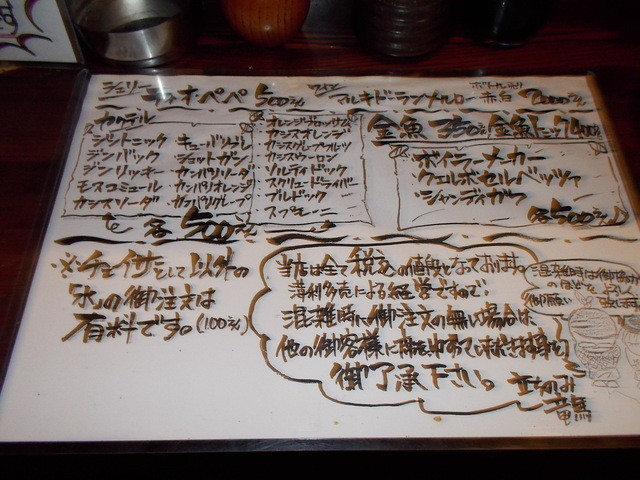 シェリー ティオペペ 500えん
ワイン マルキドランブルロー 赤・白
カクテル
ジントニック キューバリブレ
ジンバック ショットガン
ジンリッキー カンパリソーダ
モスコミュール カンパリオレンジ
カシスソーダ カンパリグレープ
オレンジブロッサム
カシスオレンジ
カシスグレープフルーツ
カシスウーロン
ソルティドック
スクリュードライバー
ブルドック
スプモーニ
各500えん
金魚 350えん 金魚ロック
ボイラーメーカー
クエルボセルベッツァ
シャンディガフ
各500えん
※チェイサーとして以外の
「氷」の御注文は
有料です。(100えん)
当店は全て税込の値段となっております。
薄利多売による経営ですので、
混雑時に御注文の無い場合は、
他の御客様に
御了承下さい。
立ち呑み
竜馬
混雑時は御協力
のほどよろしく
御願い致します